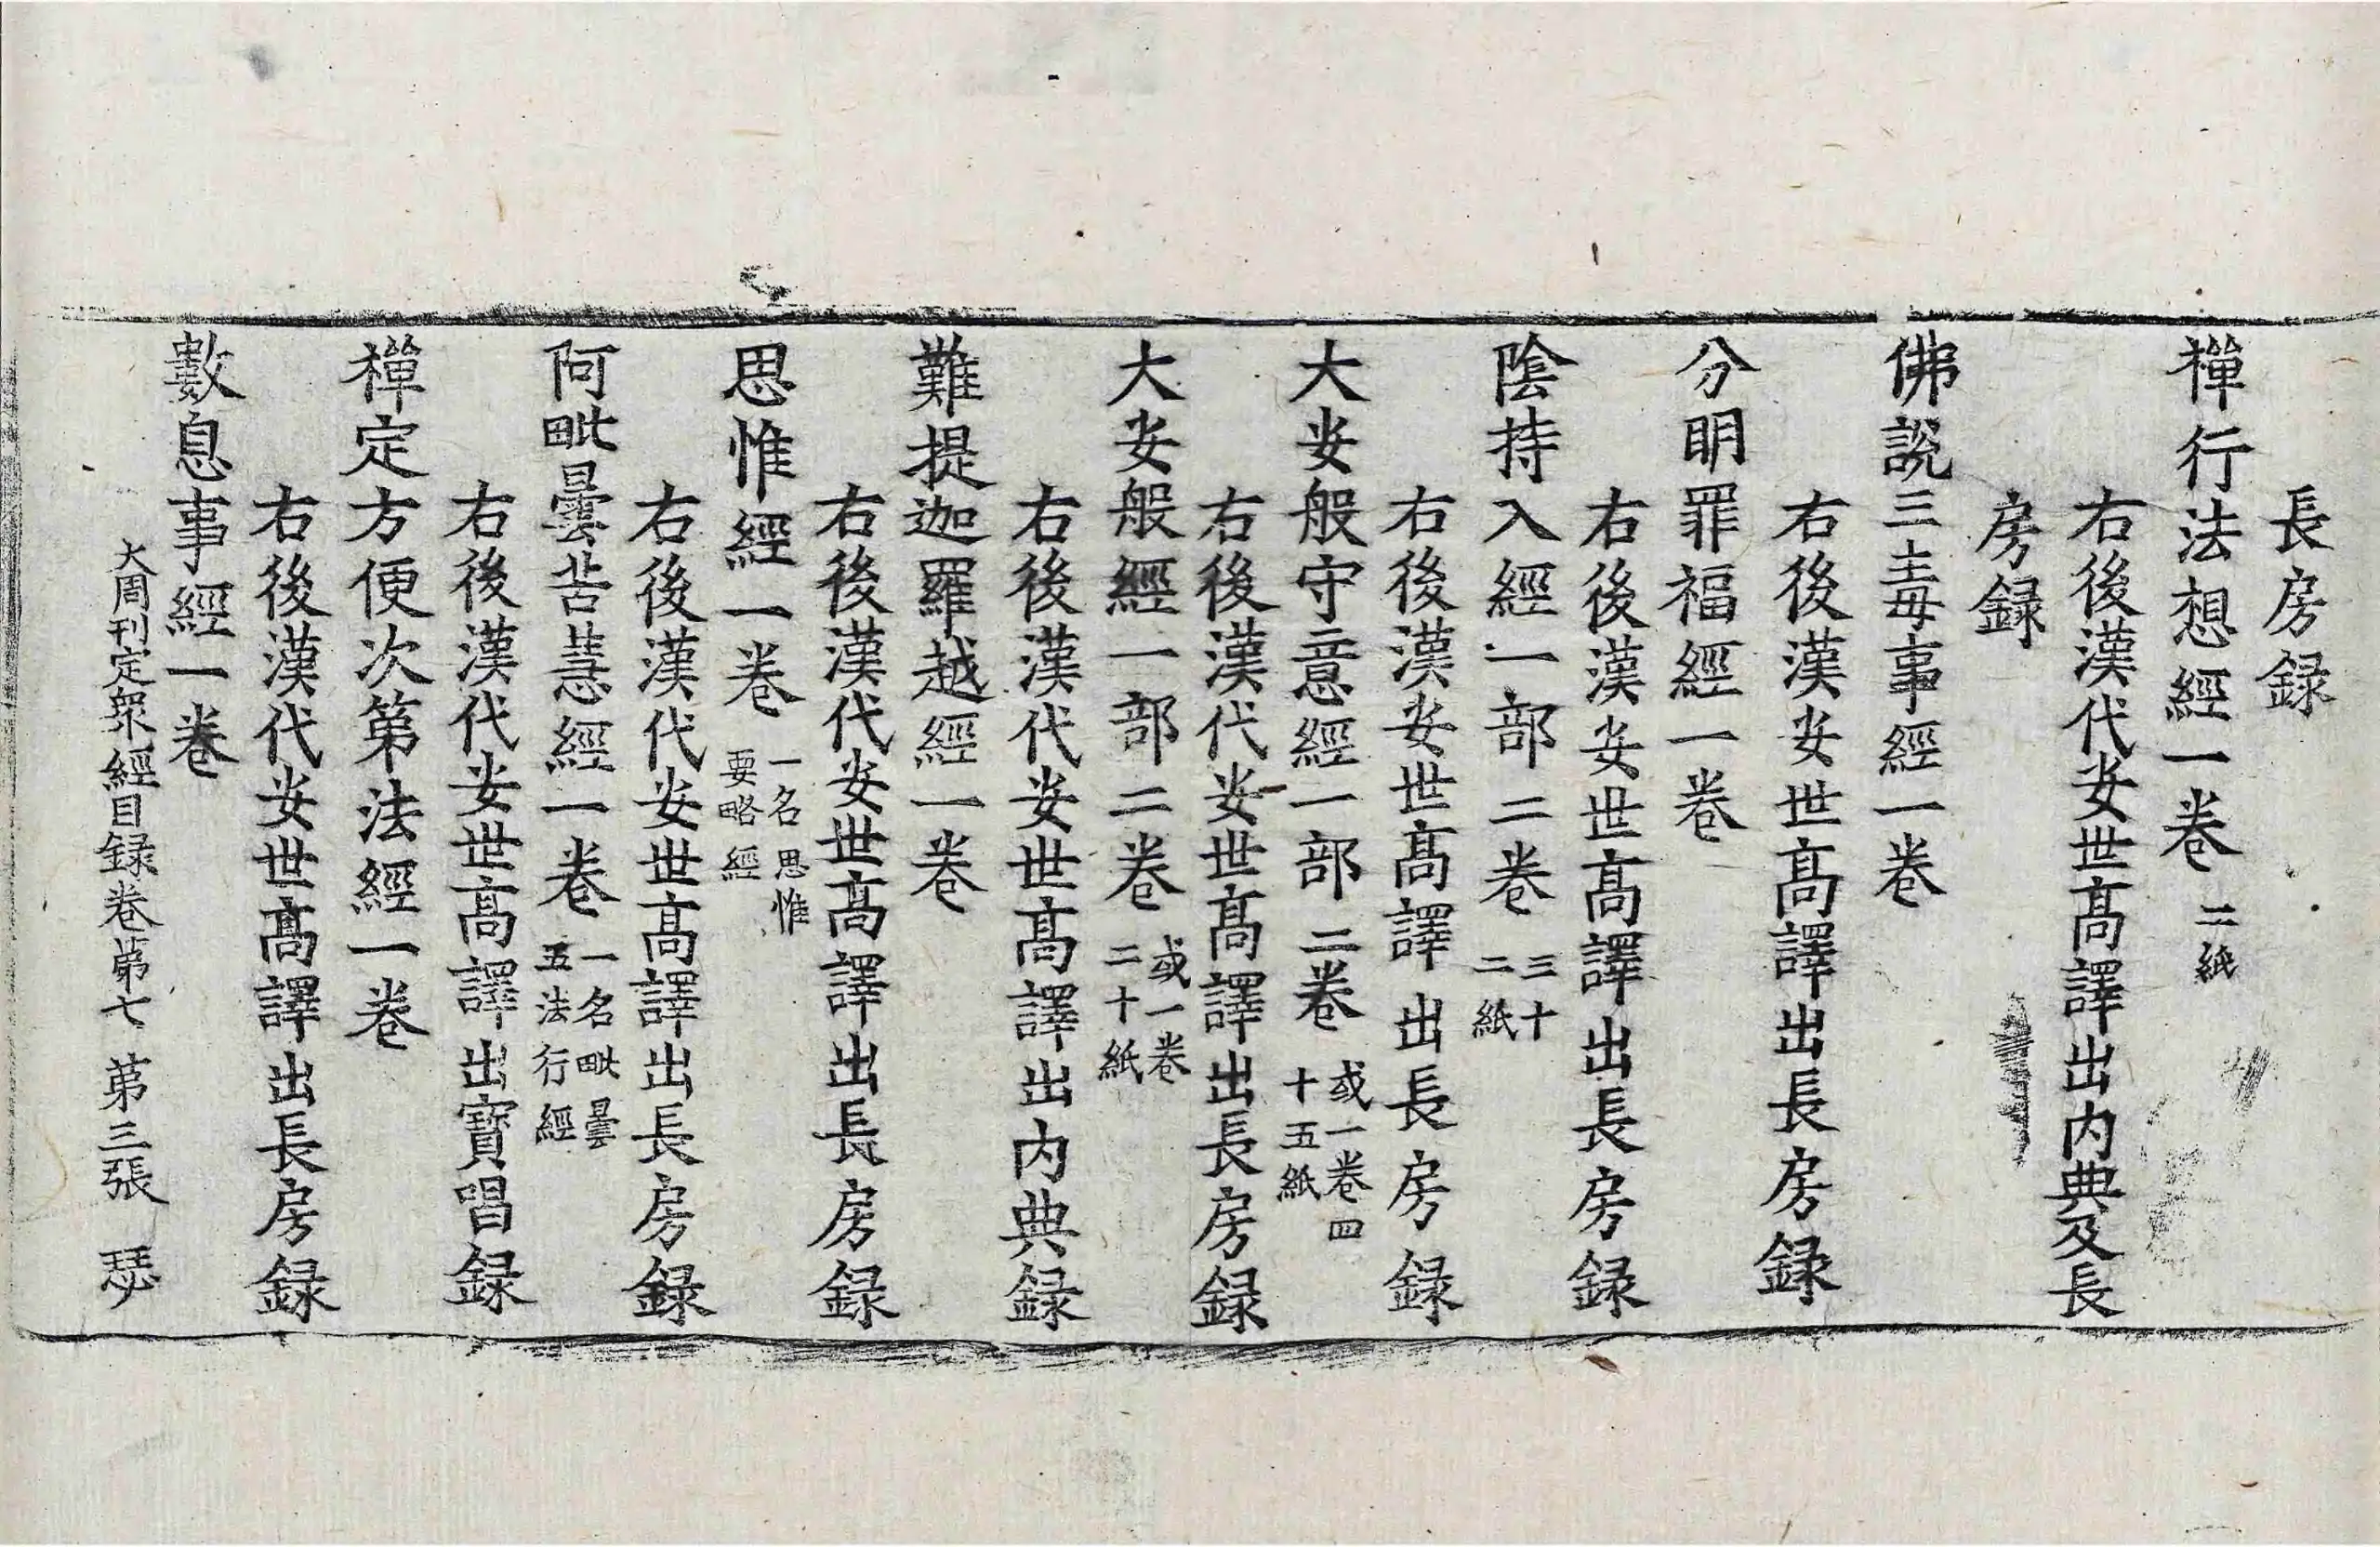 長房録
禪行法想經一卷 二紙
右後漢代安世高譯出内典及長
房録
佛說三毒事經一卷
右後漢安世高譯出長房録
分明罪福經一卷
右後漢安世高譯出長房録
陰持入經一部二卷 三十二紙
右後漢安世高譯出長房録
大安般守意經一部二卷 或一卷四十五紙
右後漢代安世高譯出長房録
大安般經一部二卷 或一卷二十紙
右後漢代安世高譯出内典録
難提迦羅越經一卷
右後漢代安世高譯出長房録
思惟經一卷 一名思惟要略經
右後漢代安世高譯出長房録
阿毗曇苦慧經一卷 一名毗曇五法行經
右後漢代安世高譯出寶唱録
禪定方便次第法經一卷
右後漢代安世高譯出長房録
數息事經一卷
大周刊定衆經目録卷第七 第三張 瑟